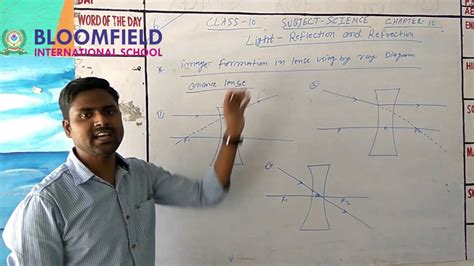 WORD OF THE DAY
BLOOMFIELD
INTERNATIONAL SCHOOL
CLASS-10 SUBJECT-SCIENCE CHAPTER-10
Light - Reflection and Refraction
* image formation in lense using by ray Diagram
concave lense
①
②
③
F₁ F₂